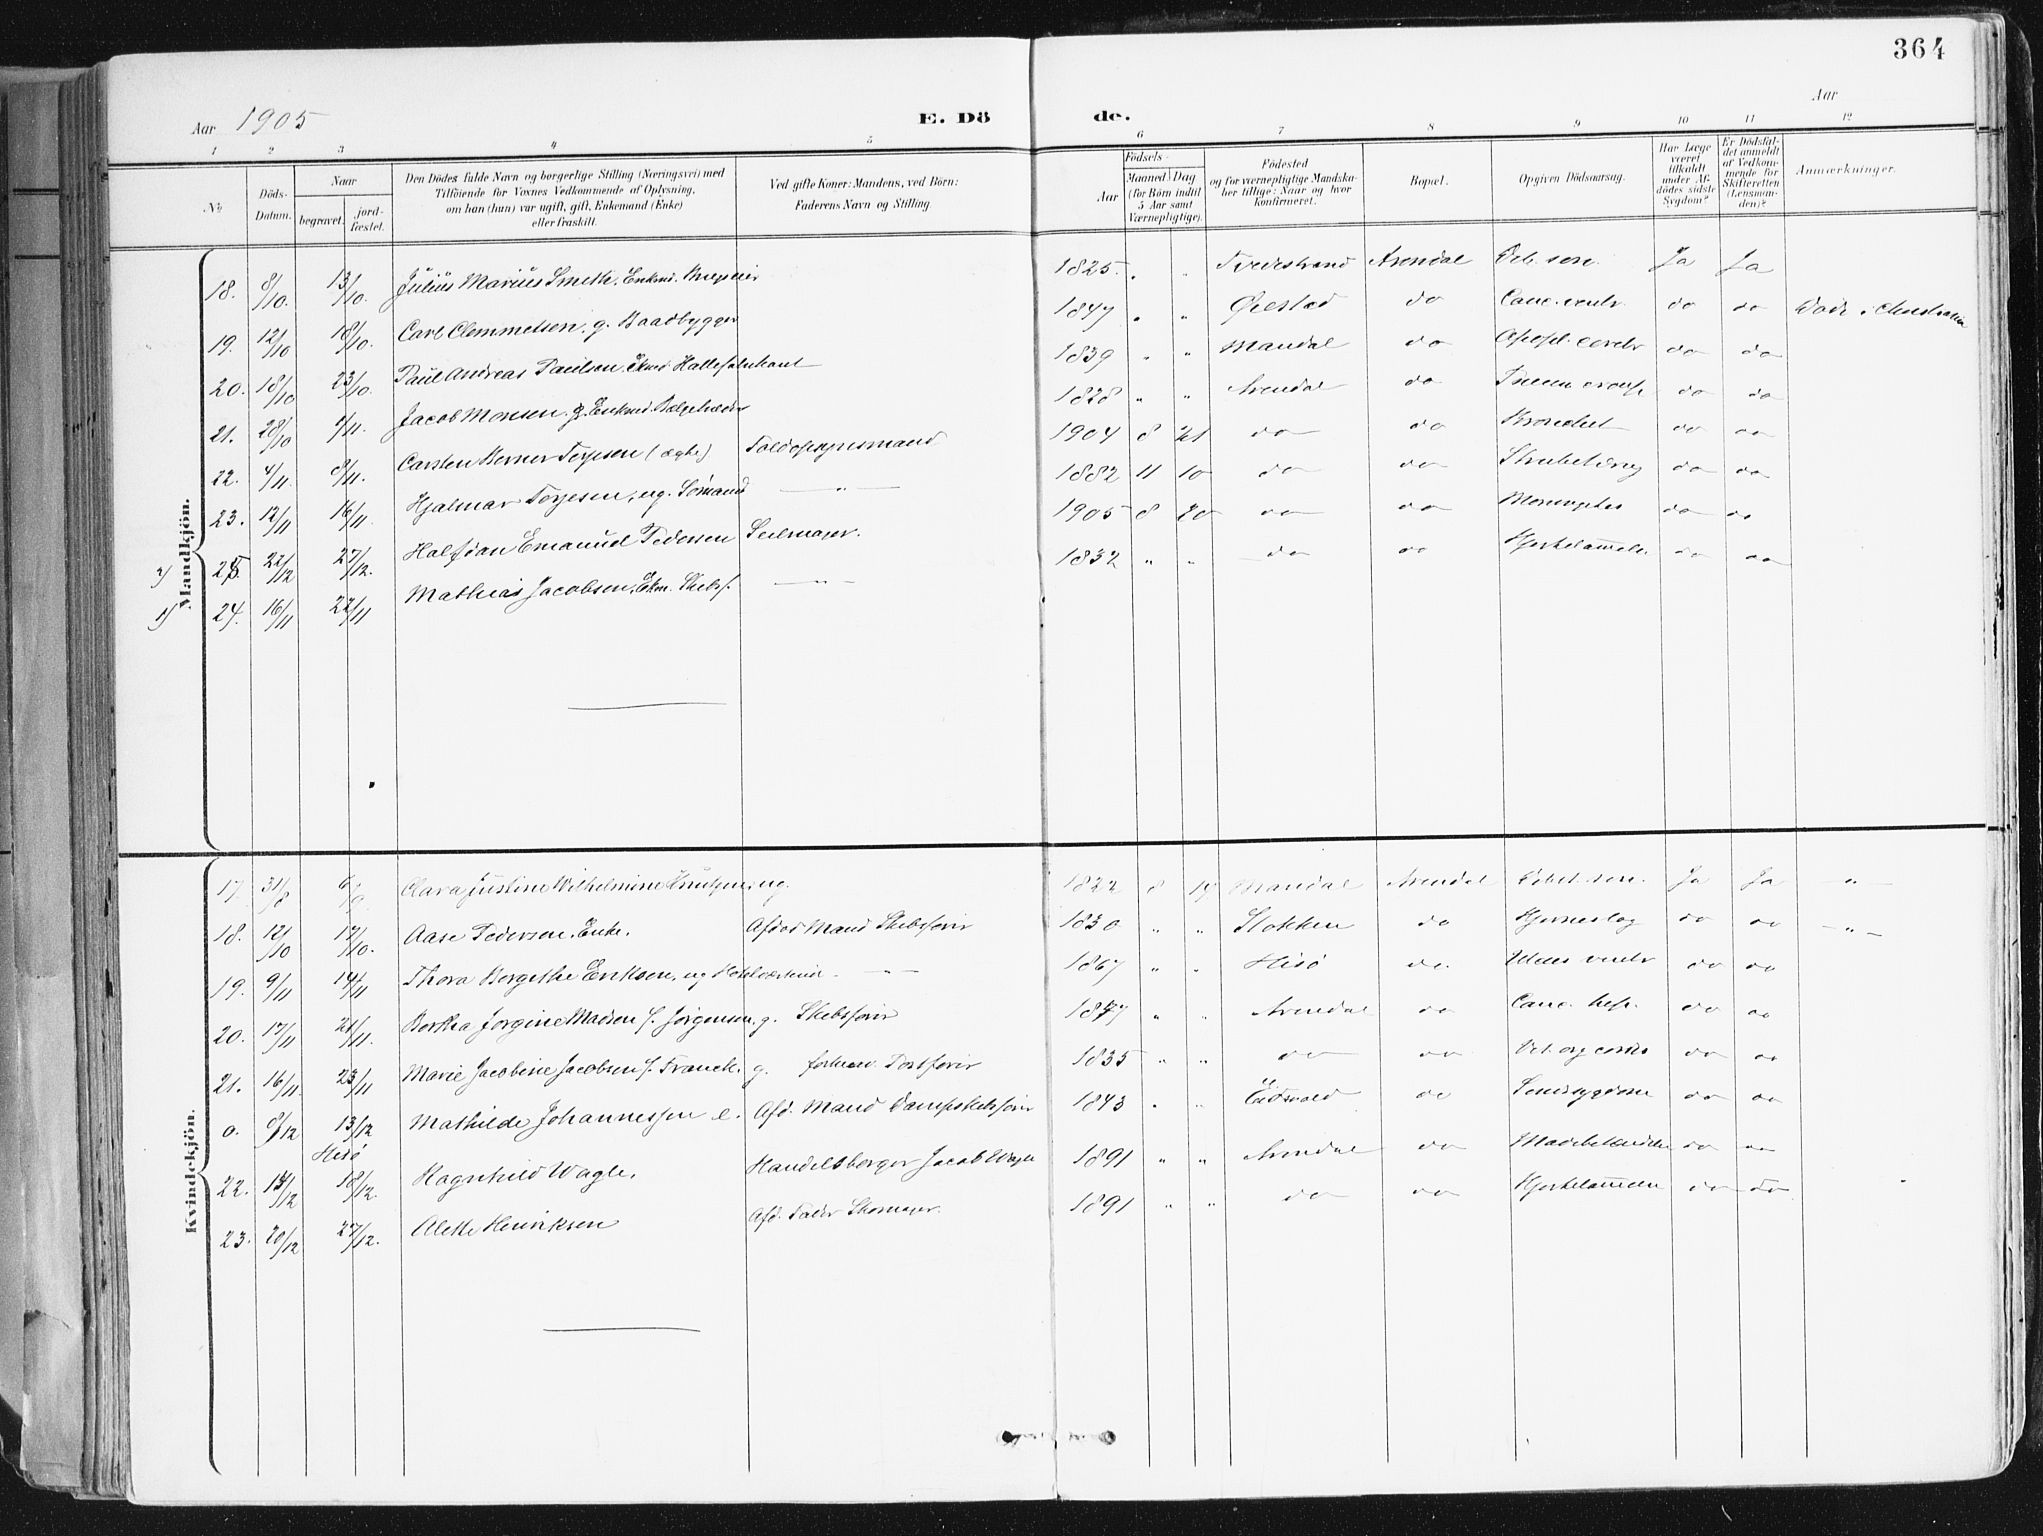 364
Aar 1905
E. Dö
de.
Aar
1 2 3 4 5 6 7 8 9 10 11 12
No
Döds-Datum.
Naar
begravet.
jord-fæstet.
Den Dödes fulde Navn og borgerlige Stilling (Næringsvei) med
Tilföiende for Voxnes Vedkommende af Oplysning,
om han (hun) var ugift, gift, Enkemand (Enke)
eller fraskilt.
Ved gifte Koner: Mandens, ved Börn:
Faderens Navn og Stilling.
Födsels-
Aar
Maaned Dag
(for Börn indtil
5 Aar samt
Værnepligtige).
Födested
og for værnepligtige Mandska-
ber tillige: Naar og hvor
konfirmeret.
Bopæl.
Opgiven Dödsaarsag.
Har Læge
været
tilkaldt
under Af-
dödes sidste
Sygdom?
Er Dödsfal-
det anmeldt
af Vedkom-
mende for
Skifteretten
(Lensman-
den)?
Anmærkninger.
Mandkjön.
18. 8/10. 13/10. Julius Marius Smith. Enkmd. 1825. " " Tvedestrand Arendal Deb. sen. Ja Ja
19. 12/10 18/10. Carl Clemmetsen. g. Baadbygger 1847 " " Øiestad do Canc. ventr. do do Død i Christiania
20. 18/10 23/10. Paul Andreas Paulsen. 1839 " " Mandal do Apopl. cerebr do do
21. 28/10 1/11. Jacob Monsen. Enkmd. 1828 " " Arendal do do do
22. 4/11. 8/11. Carsten Berner Torjesen (ægte) Toldopsynsmand 1904 8 21 do do do do
23. 12/11 16/11. Hjalmar Torjesen, ug. Sømand —"— 1882 11 10 do do do do
2) 25. 22/12 27/12. Halfdan Emanuel Pedersen Seilmager. 1905 8 20 do do do do
1) 24. 16/11 22/11 Mathias Jacobsen. Ekm. Skibsf. —"— 1832 " " do do Hjertelammelse do do
Kvindekjön.
17. 31/8 6/9. Clara Justine Wilhelmine Knutzen, ug. 1822 8 19 Mandal Arendal Debil. sen. Ja Ja —"—
18. 12/10 17/10. Aase Pedersen. Enke. Afdød Mand Skibsfører 1830 " " Stokken do Hjerneslag do do —"—
19. 9/11 14/11 Thora Bergethe Eriksen, ug —"— 1867 " " Hisø do. Ulcus ventr do do
20. 17/11 21/11. Bertha Jørgine Madsen f. Jørgensen, g. Skibsfører 1847 " " Arendal do Canc. hep. do do
21. 16/11. 23/11 Marie Jacobine Jacobsen f. Franck. g. forhenv. 1835 " " do do do do
0. 8/12 13/12 Hisø Mathilde Johannessen e. Afd. Mand Dampskibsfører 1843 " " Eidsvold do do do
22. 14/12 18/12. Ragnhild Wagle. Handelsborger Jacob Wagle 1891 " " Arendal do do do
23. 20/12 27/12. Alette Henriksen Afd. Fader Skomager. 1891 " " do do Hjertelammelse do do